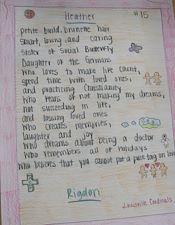 Heather
#15
petite build, brunette hair
Smart, loving and caring
Sister of Social Butterfly
Daughter of the Germans
Who loves to make life count,
spend time with loved ones,
and practicing Christianity
Who fears of not making my dreams,
not succeeding in life,
and losing loved ones
Who creates memories,
laughter and joy
Who dreams about being a doctor
Who remembers all of holidays
Who believes that you cannot put a price tag on love
Rigdon
Louisville Cardinals